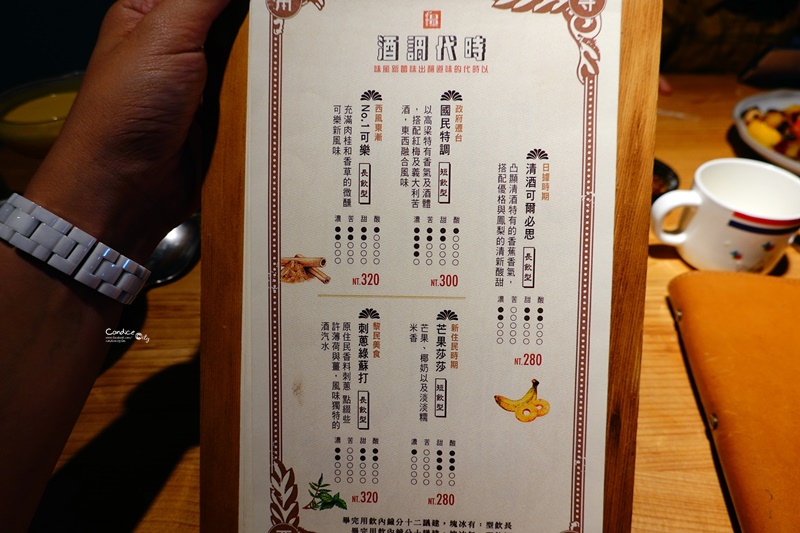 酒調代時
味風新釀味出隱道味的代時以
日據時期
清酒可爾必思
長飲型
凸顯清酒特有的香蕉香氣,
搭配優格與鳳梨的清新酸甜
酸
甜
苦
濃
NT.280
政府遷台
國民特調
短飲型
以高粱特有香氣及酒體
,搭配紅梅及義大利苦
酒,東西融合風味
酸
甜
苦
濃
NT.300
西風東漸
No.1可樂
長飲型
充滿肉桂和香草的微醺
可樂新風味
酸
甜
苦
濃
NT.320
新住民時期
芒果莎莎
短飲型
芒果、椰奶以及淡淡糯
米香
酸
甜
苦
濃
NT.280
黎民美食
刺蔥綠蘇打
長飲型
原住民香料刺蔥 點綴些
許薄荷與薑,風味獨特的
酒汽水
酸
甜
苦
濃
NT.320
畢完用飲內鐘分二十議建,塊冰有:型飲長
Candice City